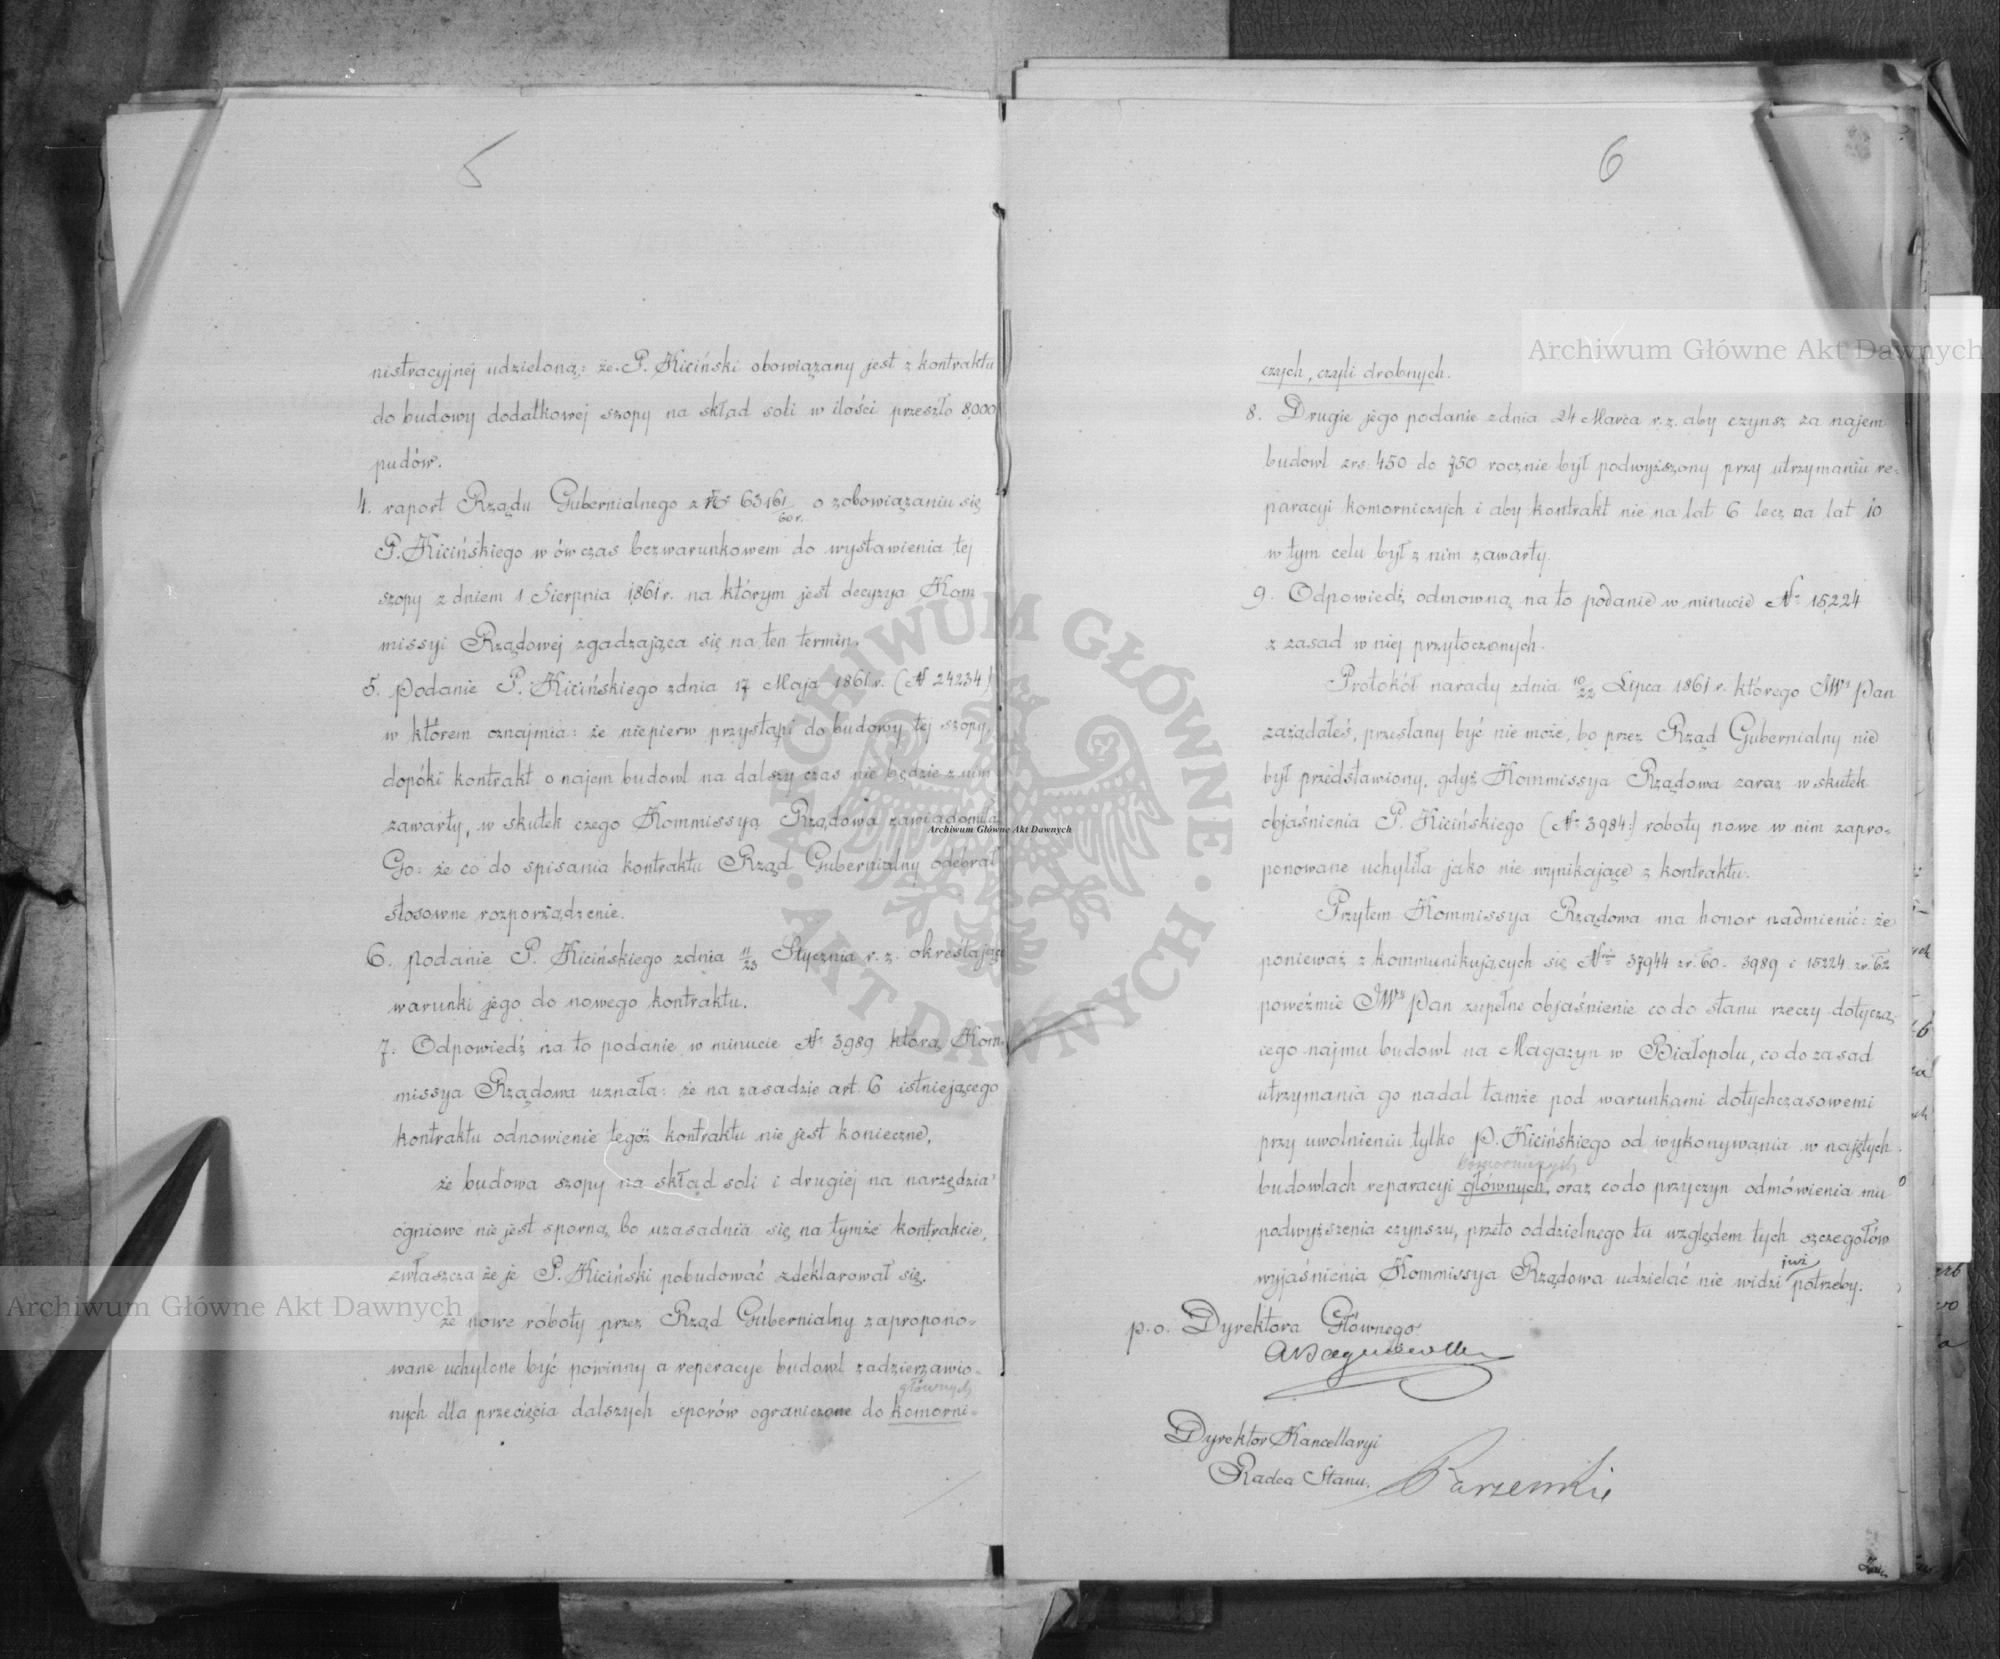 5
nistracyjnéj udzieloną: że P. Kiciński obowiązany jest z kontraktu
do budowy dodatkowej szopy na skład soli w ilości przeszło 8000
pudów.
4. raport Rządu Gubernialnego z No 63161/60 r. o zobowiązaniu się
P. Kicińskiego w ów czas bezwarunkowem do wystawienia tej
szopy z dniem 1 Sierpnia 1861 r. na którym jest decyzya Kom
missyi Rządowej zgadzająca się na ten termin.
5. Podanie P. Kicińskiego z dnia 17 Maja 1861 r. (N 24234)
w którem oznajmia: że niepierw przystąpi do budowy tej szopy,
dopóki kontrakt o najem budowl na dalszy czas nie będzie z nim
zawarty, w skutek czego Kommissya Rządowa zawiadomiła
Go: że co do spisania kontraktu Rząd Gubernialny odebrał
stosowne rozporządzenie.
6. podanie P. Kicińskiego z dnia 11/23 Stycznia r. z. określające
warunki jego do nowego kontraktu.
7. Odpowiedź na to podanie w minucie Nr 3989 którą Kom-
missya Rządowa uznała: że na zasadzie art. 6 istniejącego
kontraktu odnowienie tegóż kontraktu nie jest konieczne,
że budowa szopy na skład soli i drugiéj na narzędzia
ogniowe nie jest sporną, bo uzasadnia się na tymże kontrakcie,
zwłaszcza że je P. Kiciński pobudować zdeklarował się.
że nowe roboty przez Rząd Gubernialny zapropono-
wane uchylone być powinny a reperacye budowl zadzierzawio-
głównych
nych dla przecięcia dalszych sporów ograniczone do komorni-
6
czych, czyli drobnych.
8. Drugie jego podanie z dnia 24 Marca r. z. aby czynsz za najem
budowl z rs: 450 do 750 rocznie był podwyższony przy utrzymaniu re-
paracyi komorniczych i aby kontrakt nie na lat 6 lecz na lat 10
w tym celu był z nim zawarty.
9. Odpowiedź odmowną na to podanie w minucie Nr 15224
z zasad w niéj przytoczonych.
Protokół narady z dnia 10/22 Lipca 1861 r. którego JWy Pan
zażądałeś, przesłany być nie może, bo przez Rząd Gubernialny nie
był przedstawiony, gdyż Kommissya Rządowa zaraz w skutek
objaśnienia P. Kicińskiego (Nr 3984:) roboty nowe w nim zapro-
ponowane uchyliła jako nie wynikające z kontraktu.
Przytem Kommissya Rządowa ma honor nadmienić: że
ponieważ z kommunikujących się Nrów 37944 zr. 60. 3989 i 15224 zr. 62
poweźmie JWy Pan zupełne objaśnienie co do stanu rzeczy dotyczą-
cego najmu budowl na Magazyn w Białopolu, co do zasad
utrzymania go nadal tamże pod warunkami dotychczasowemi
przy uwolnieniu tylko P. Kicińskiego od wykonywania w najętych
komorniczych
budowlach reparacyi głównych, oraz co do przyczyn odmówienia mu
podwyższenia czynszu, przeto oddzielnego tu względem tych szczegołów
wyjaśnienia Kommissya Rządowa udzielać nie widzi już potrzeby.
p. o. Dyrektora Głównego
Dyrektor Kancellaryi
Radca Stanu,
Archiwum Główne Akt Dawnych
Archiwum Główne Akt Dawnych
Archiwum Główne Akt Dawnych
ARCHIWUM GŁÓWNE · AKT DAWNYCH ·